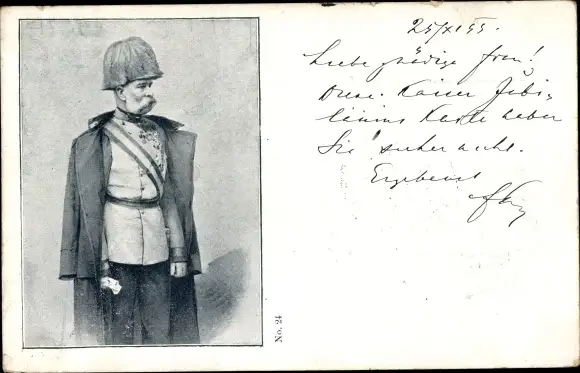 25/XI 99.
Liebe gnädige Frau!
Diese Kaiser Jubi-
läums Karte haben
Sie sicher nicht.
Ergebenst
No. 24